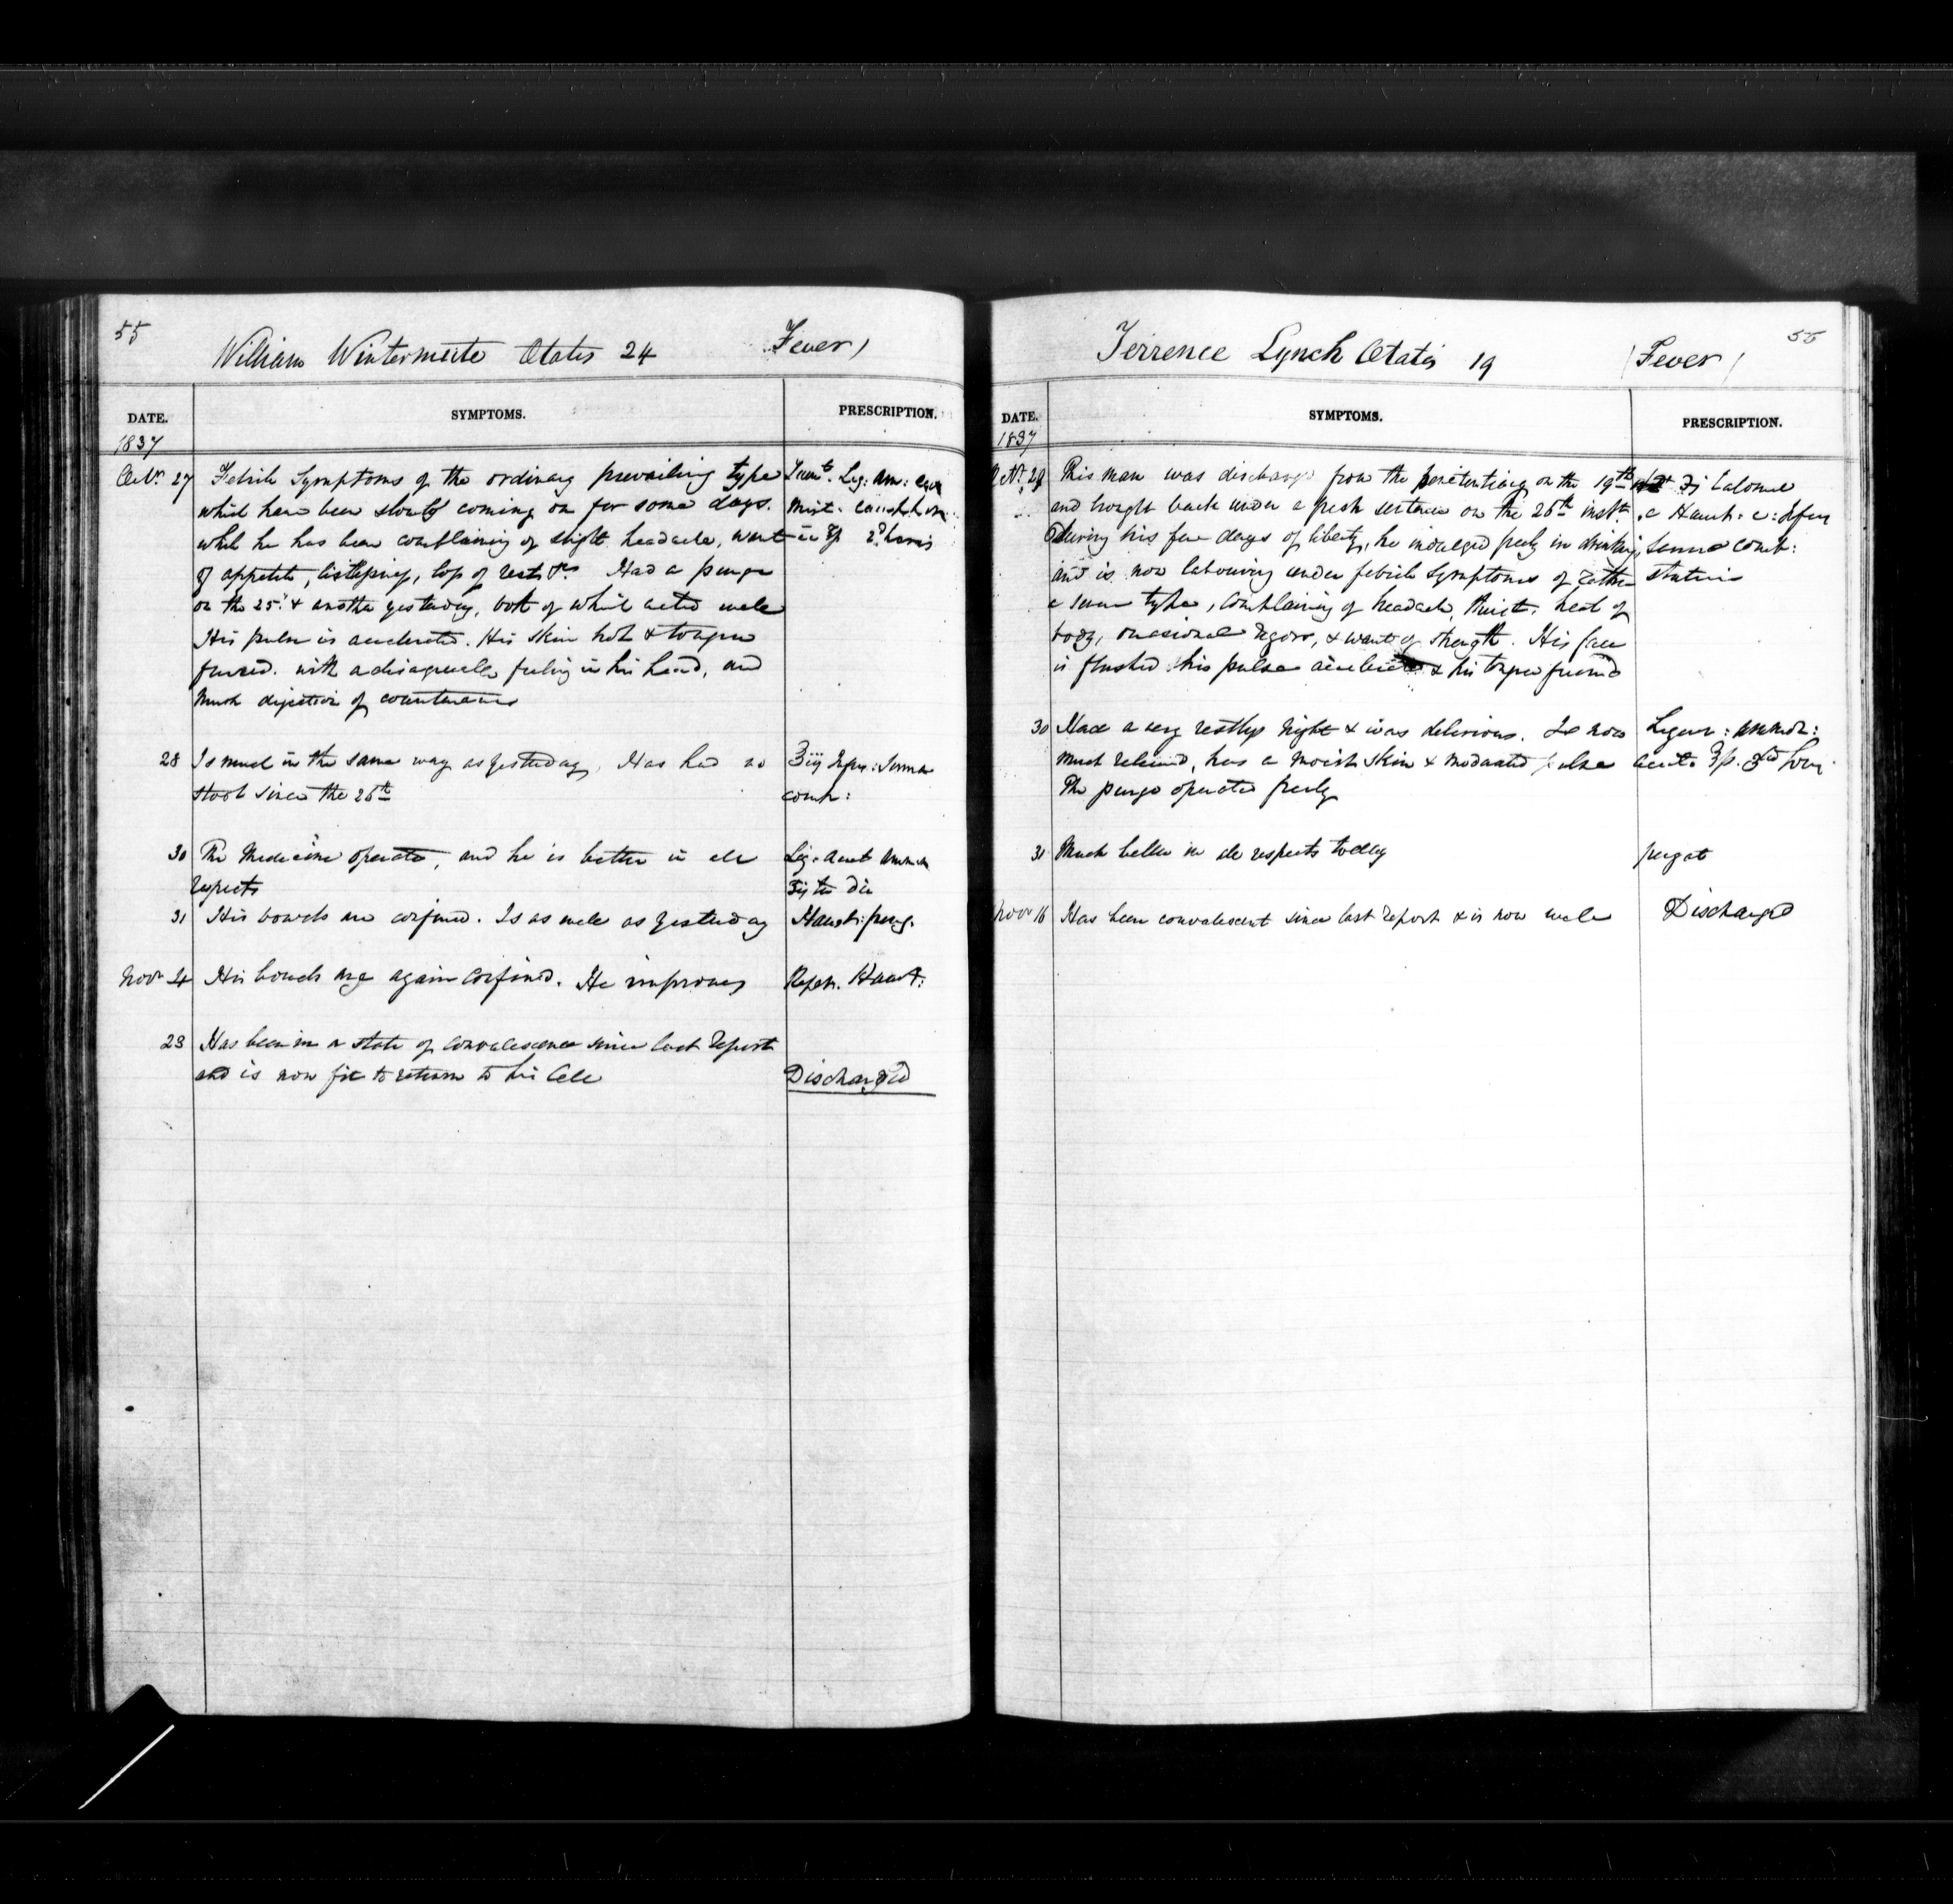 55
William Wintermute Ætatis 24 Fever)
DATE. SYMPTOMS. PRESCRIPTION.
1837
Octr. 27 Febrile Symptoms of the ordinary prevailing type
which have been slowly coming on for some days.
while he has been complaining of slight headache, want
of appetite, listlessness, loss of rest &c. Had a purge
on the 25th & another yesterday, both of which acted well
His pulse is accelerated. His skin hot & tongue
furred. with a disagreeable feeling in his head, and
much dejection of countenance
Liq: am: acet
Mist: camph:
28 Is much in the same way as yesterday. Has had no
stool since the 26th
Infus: Senna
comp:
30 The Medicine operated, and he is better in all
respects
Liq: acet ammon
ter die
31 His bowels are confined. Is as well as yesterday
Haust: purg.
Novr 4 His bowels are again confined. He improves
Repet. Haust:
23 Has been in a state of convalescence since last report
and is now fit to return to his Cell
Discharged
55
Terrence Lynch Ætatis 19 (Fever)
DATE. SYMPTOMS. PRESCRIPTION.
1837
Octr. 29 This man was discharged from the penitentiary on the 19th
and brought back under a fresh sentence on the 26th inst.
During his few days of liberty, he indulged freely in drinking
and is now labouring under febrile Symptoms of rather
a severe type, complaining of headach, thirst, heat of
body, occasional rigors, & want of strength. His face
is flushed his pulse accelerated & his tongue furred
Calomel
c Haust: c: Infus
Sennae comp:
statim
30 Had a very restless night & was delirious. Is now
much relieved, has a moist skin & moderated pulse
The purge operated freely
Liquor: ammon:
acet:
31 Much better in all respects today
purgat
Novr 16 Has been convalescent since last report & is now well
Discharged